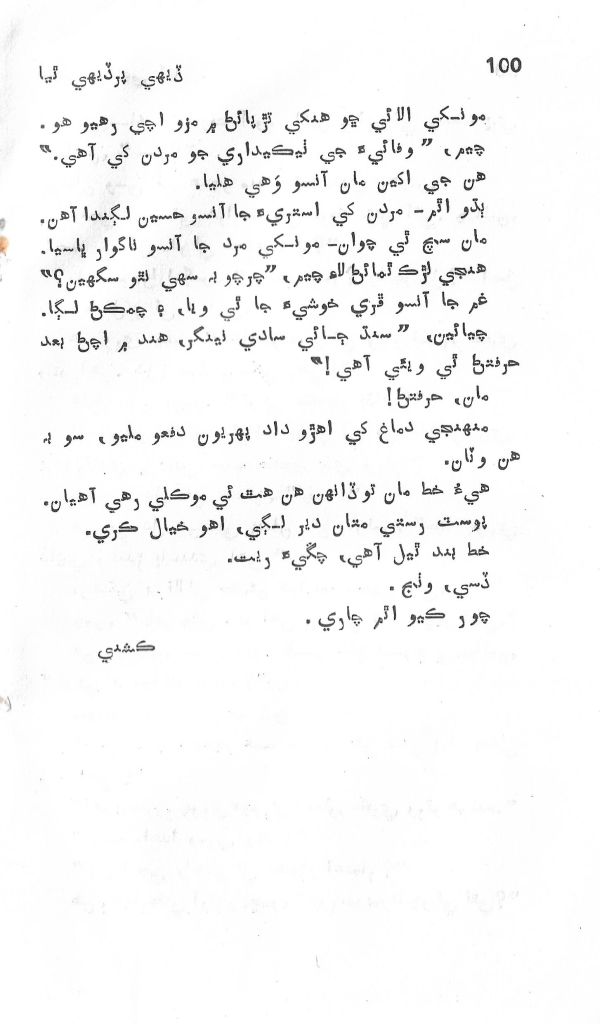 100
ڏيھي پرڏيھي ٿيا
مونکي الائي ڇو ھنکي تڙپائڻ ۾ مزو اچي رھيو ھو.
چيم، ”وفائيءَ جي ٺيڪيداري جو مردن کي آھي.“
ھن جي اکين مان آنسو وَھي ھليا.
ٻڌو اٿم- مردن کي استريءَ جا آنسو حسين لڳندا آھن.
مان سچ ٿي چوان- مونکي مرد جا آنسو ناگوار ڀاسيا.
ھنجي لڙڪ ٿمائڻ لاءِ چيم، ”چرچو بہ سھي نٿو سگھين؟“
غم جا آنسو ڦري خوشيءَ جا ٿي ويا، ۽ چمڪڻ لڳا.
چيائين، ”سنڌ ڄائي سادي نينگر، ھند ۾ اچڻ بعد
حرفتڻ ٿي ويئي آھي!“
مان، حرفتڻ!
منھنجي دماغ کي اھڙو داد پھريون دفعو مليو، سو بہ
ھن وٽان.
ھيءُ خط مان توڏانھن ھن ھٿ ئي موڪلي رھي آھيان.
پوسٽ رستي متان دير لڳي، اھو خيال ڪري.
خط بند ٿيل آھي، چڱيءَ ريت.
ڏسي، وٺج.
چور ڪيو اٿم چاري.
ڪشني